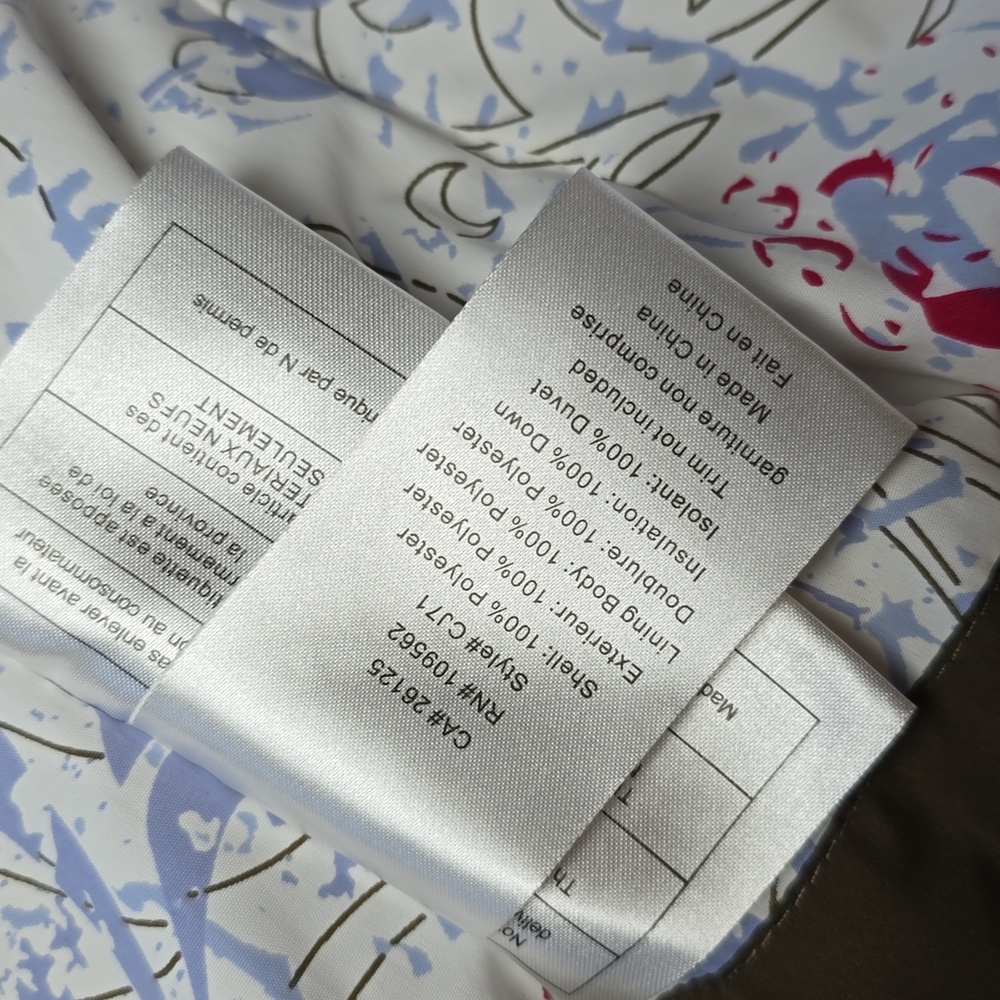 CA# 26125
RN# 109562
Style# CJ71
Shell: 100% Polyester
Exterieur: 100% Polyester
Lining Body: 100% Polyester
Doublure: 100% Polyester
Insulation: 100% Down
Isolant: 100% Duvet
Trim not included
garniture non comprise
Made in China
Fait en Chine
as enlever avant la
on au consommateur
iquette est apposee
rmement a la loi de
la province
article contient des
TERIAUX NEUFS
SEULEMENT
ique par N de permis
No
deliv
Th
T
Mad